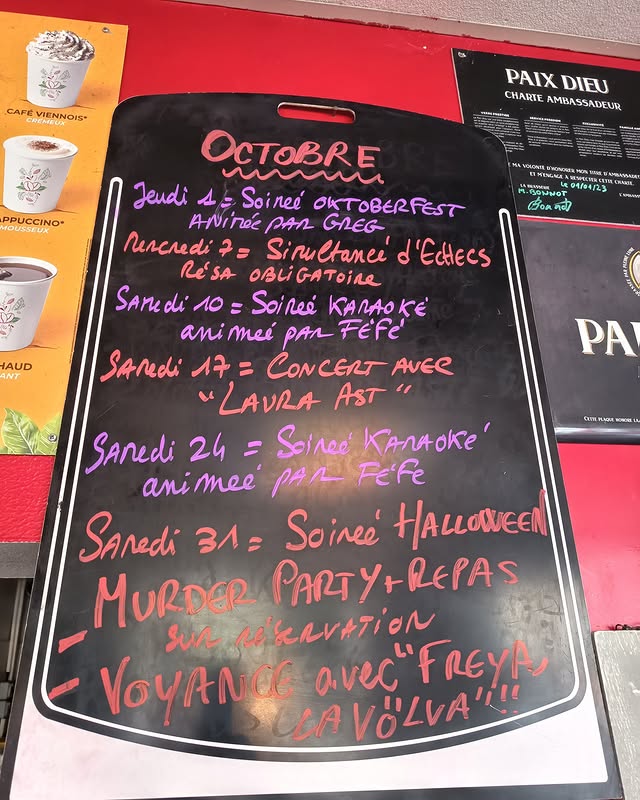 OCTOBRE
Jeudi 1 = Soireé OKTOBERFEST
ANIMéE PAR GREG
Mercredi 7 = Simultaneé d'Echecs
RéSA OBLIGATOIRE
Samedi 10 = Soireé KARAOKé
animeé par FéFé
Samedi 17 = CONCERT AVEC
"LAURA AST"
Samedi 24 = Soireé KARAOKé
animeé PAR FéFé
Samedi 31 = Soireé HALLOWEEN
- MURDER PARTY + REPAS
sur réservation
- VOYANCE avec "FREYA,
LA VÖLVA"!!
CAFÉ VIENNOIS*
CRÉMEUX
APPUCCINO*
MOUSSEUX
HAUD
ANT
PAIX DIEU
CHARTE AMBASSADEUR
MA VOLONTÉ D'HONORER MON TITRE D'AMBASSADE
ET M'ENGAGE À RESPECTER CETTE CHARTE.
LA BRASSEUR
LE 01/01/23
M. BONNOT
PAI
CETTE PLAQUE HONORE LA